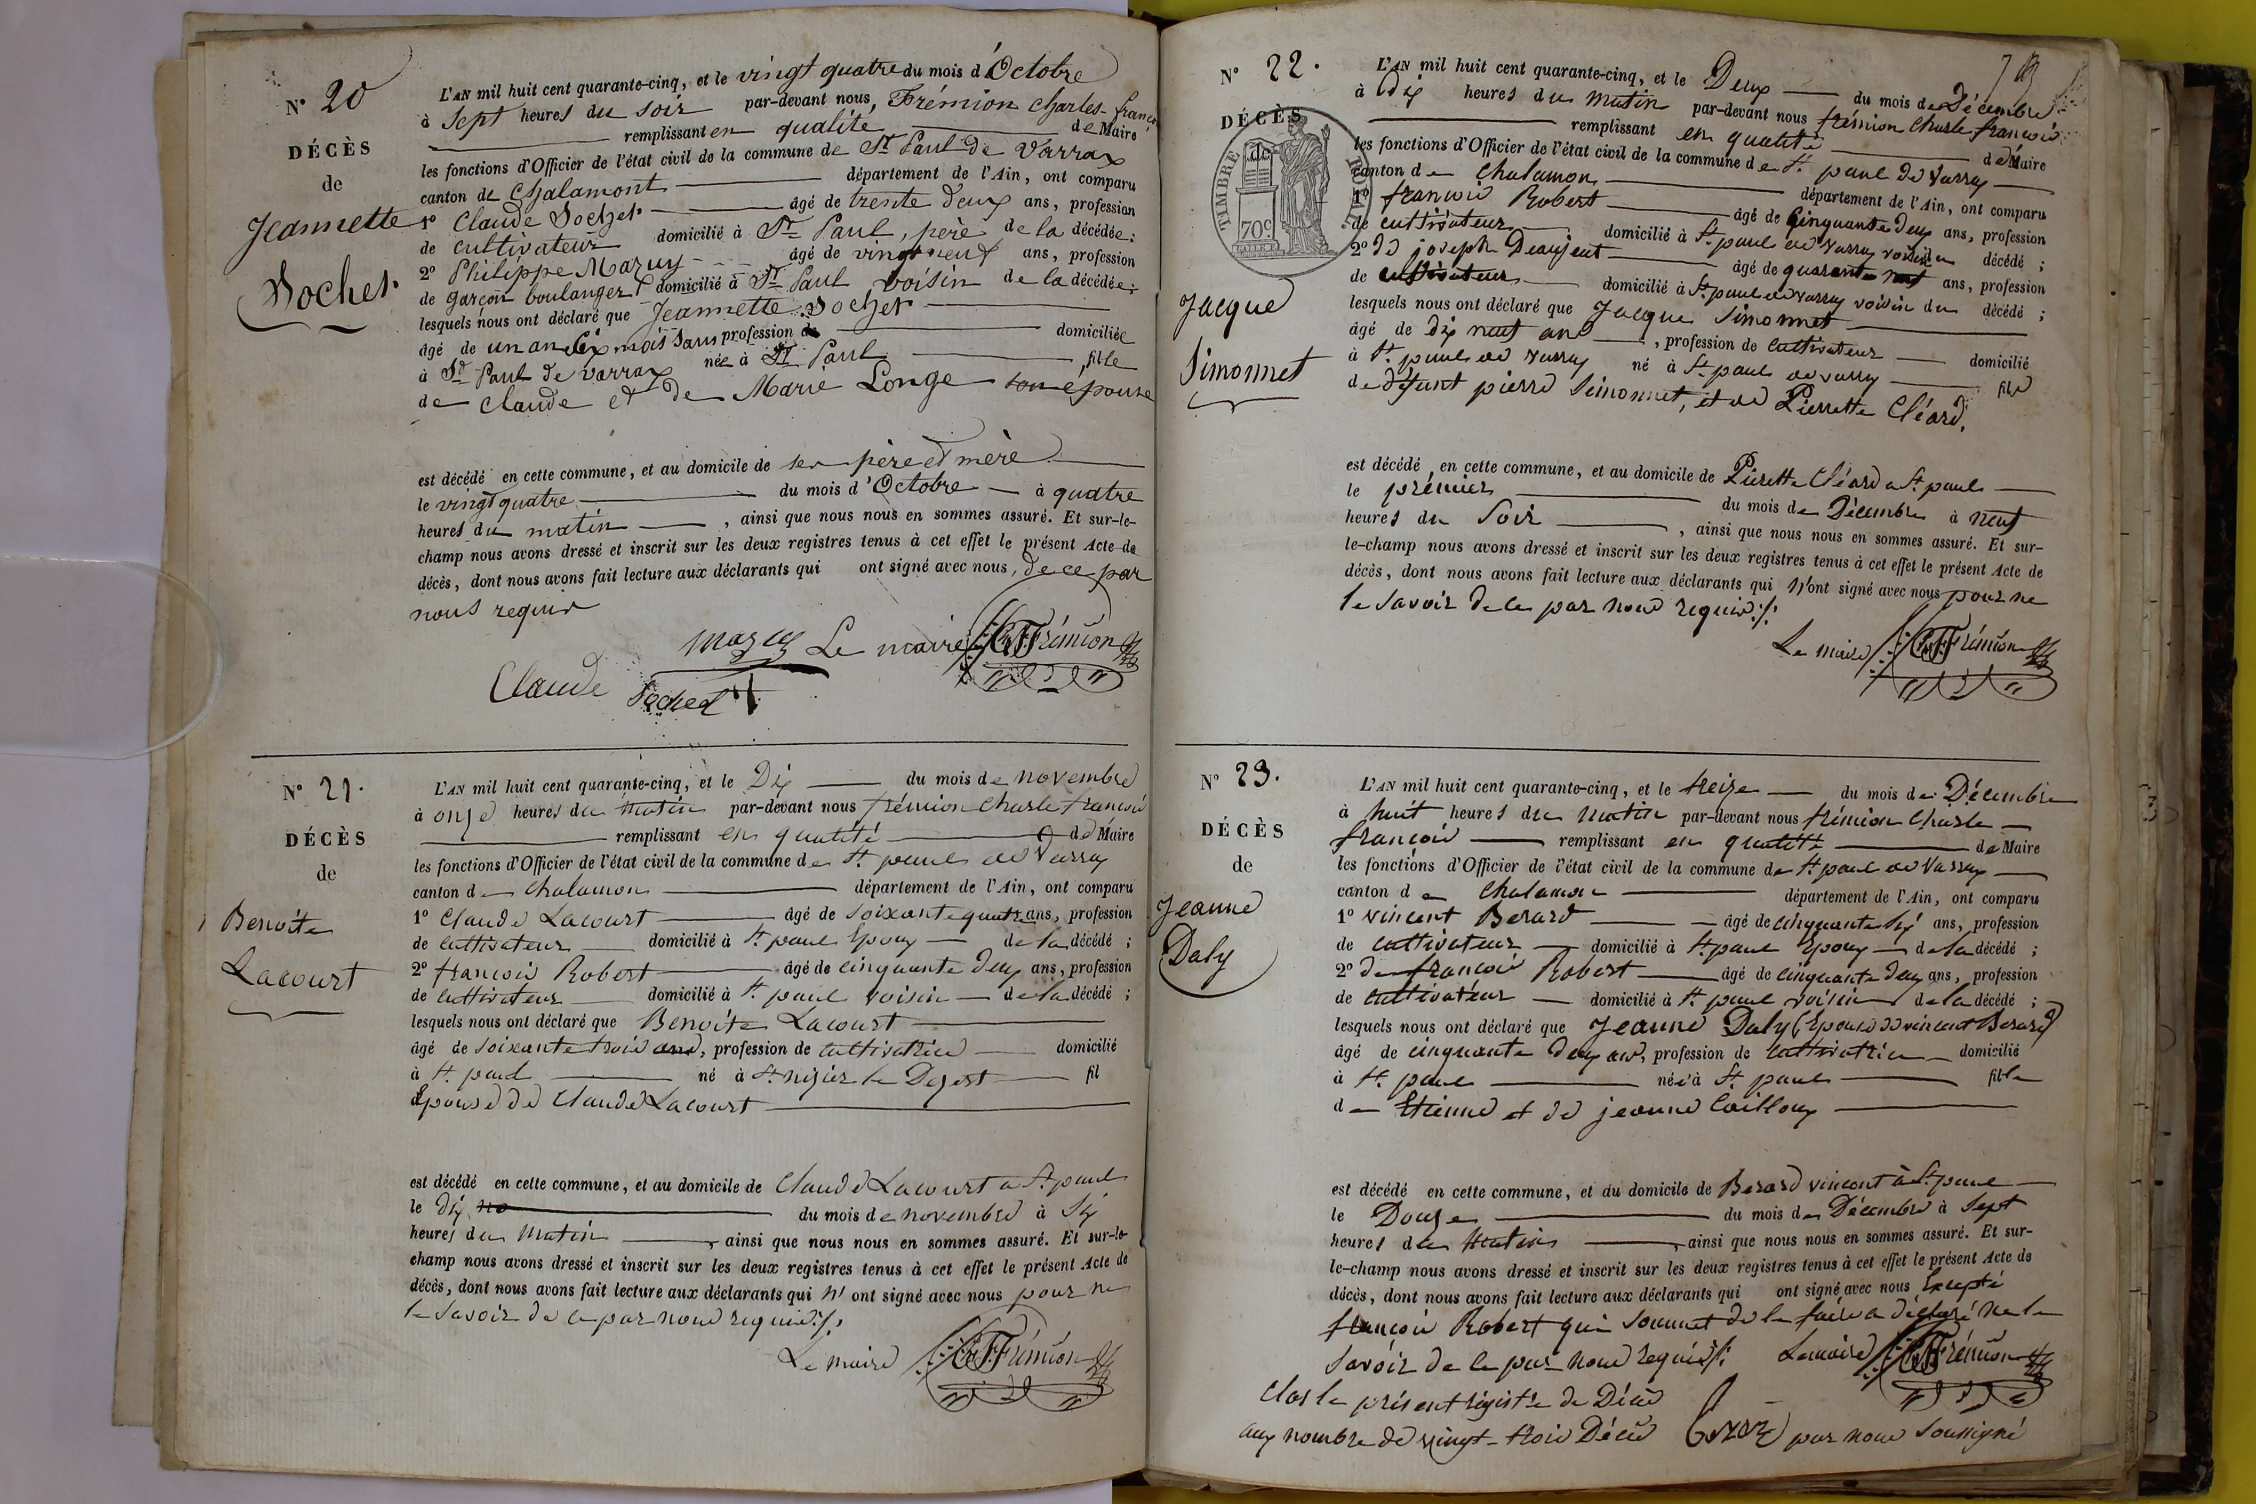 N° 20
DÉCÈS
de
Jeannette
Sochet
L'AN mil huit cent quarante-cinq, et le vingt quatre du mois d'Octobre
à Sept heures du soir par-devant nous, Frémion Charles-françois
remplissant en qualité de Maire
les fonctions d'Officier de l'état civil de la commune de St Paul de Varrax
canton de Chalamont département de l'Ain, ont comparu
1° Claude Sochet âgé de trente deux ans, profession
de cultivateur domicilié à St Paul, père de la décédée;
2° Philippe Mazuy âgé de vingt neuf ans, profession
de garçon boulanger domicilié à St Paul voisin de la décédée;
lesquels nous ont déclaré que Jeannette Sochet
âgé de un an six mois sans profession d domiciliée
à St Paul de Varrax née à St Paul fille
de Claude et de Marie Longe son épouse
est décédé en cette commune, et au domicile de ses père et mère
le vingt quatre du mois d'Octobre à quatre
heures du matin, ainsi que nous nous en sommes assuré. Et sur-le-
champ nous avons dressé et inscrit sur les deux registres tenus à cet effet le présent Acte de
décès, dont nous avons fait lecture aux déclarants qui ont signé avec nous, de ce par
nous requis
Mazuy Le maire Frémion
Claude Sochet
N° 21.
DÉCÈS
de
Benoite
Lacourt
L'AN mil huit cent quarante-cinq, et le Dix du mois de novembre
à onze heures du matin par-devant nous frémion Charle francois
remplissant en qualité de Maire
les fonctions d'Officier de l'état civil de la commune de St. paul de Varray
canton de Chalamon département de l'Ain, ont comparu
1° Claude Lacourt âgé de soixante quatre ans, profession
de cultivateur domicilié à St. paul Epoux de la décédé;
2° francois Robert âgé de cinquante deux ans, profession
de cultivateur domicilié à St. paul voisin de la décédé;
lesquels nous ont déclaré que Benoite Lacourt
âgé de soixante trois ans, profession de cultivatrice domicilié
à St. paul né à St. nizier le Desert fil
Epouse de Claude Lacourt
est décédé en cette commune, et au domicile de Claude Lacourt a St. paul
le dix no du mois de novembre à Six
heures du Matin, ainsi que nous nous en sommes assuré. Et sur-le-
champ nous avons dressé et inscrit sur les deux registres tenus à cet effet le présent Acte de
décès, dont nous avons fait lecture aux déclarants qui n'ont signé avec nous pour ne
le savoir de ce par nous requis
Le maire Frémion
N° 22.
DÉCÈS
de
TIMBRE ROYAL
70c
Jacque
Simonnet
L'AN mil huit cent quarante-cinq, et le Deux du mois de Décembre
à dix heures du matin par-devant nous frémion Charle francois
remplissant en qualité de Maire
les fonctions d'Officier de l'état civil de la commune de St. paul de Varray
canton de Chalamon département de l'Ain, ont comparu
1° francois Robert âgé de Cinquante deux ans, profession
de cultivateur domicilié à St. paul de Varray voisin du décédé;
2° de joseph Deaujeut âgé de quarante neuf ans, profession
de cultivateur domicilié à St. paul de varray voisin du décédé;
lesquels nous ont déclaré que Jacque Simonnet
âgé de dix neuf ans, profession de cultivateur domicilié
à St. paul de varray né à St. paul de varray fils
de défunt pierre Simonnet, et de Pierrette Cléard.
est décédé en cette commune, et au domicile de Pierette Cléard a St. paul
le premier du mois de Décembre à neuf
heures du Soir, ainsi que nous nous en sommes assuré. Et sur-
le-champ nous avons dressé et inscrit sur les deux registres tenus à cet effet le présent Acte de
décès, dont nous avons fait lecture aux déclarants qui n'ont signé avec nous pour ne
le savoir de ce par nous requis
Le maire Frémion
N° 23.
DÉCÈS
de
Jeanne
Daly
L'AN mil huit cent quarante-cinq, et le treize du mois de Décembre
à huit heures du matin par-devant nous frémion Charle
francois remplissant en qualité de Maire
les fonctions d'Officier de l'état civil de la commune de St. paul de Varray
canton de Chalamon département de l'Ain, ont comparu
1° Vincent Berard âgé de cinquante six ans, profession
de cultivateur domicilié à St. paul Epoux de la décédé;
2° de francois Robert âgé de cinquante deux ans, profession
de cultivateur domicilié à St. paul voisin de la décédé;
lesquels nous ont déclaré que Jeanne Daly (Epouse de vincent Berard)
âgé de cinquante deux ans, profession de cultivatrice domicilié
à St. paul née à St. paul fille
de Etienne et de jeanne Cailloux
est décédé en cette commune, et du domicile de Berard vincent à St. paul
le Douze du mois de Décembre à Sept
heures du Matin, ainsi que nous nous en sommes assuré. Et sur-
le-champ nous avons dressé et inscrit sur les deux registres tenus à cet effet le présent Acte de
décès, dont nous avons fait lecture aux déclarants qui ont signé avec nous Excepté
francois Robert qui sommet de le faire a déclaré ne le
savoir de ce par nous requis Le maire Frémion
Clos le présent registre de Décès
aux nombre de vingt-trois Décès par nous soussigné